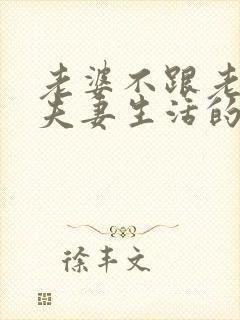 老婆不跟老
夫妻生活的
徐丰文